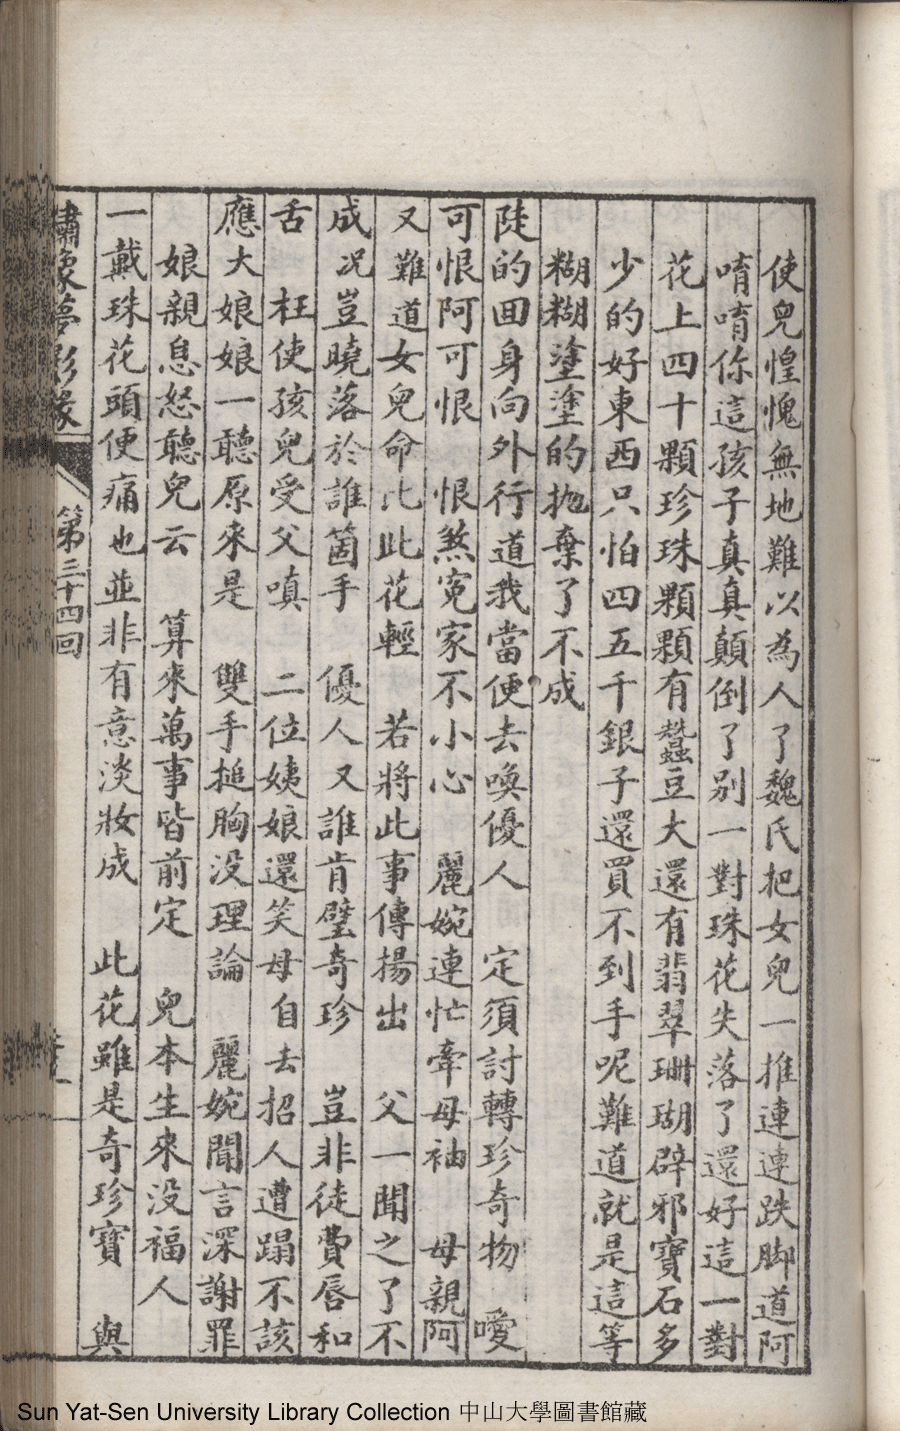 使兒惶愧無地難以為人了魏氏把女兒一推連連跌脚道阿
唷唷你這孩子真真顛倒了別一對珠花失落了還好這一對
花上四十顆珍珠顆顆有蠶豆大還有翡翠珊瑚辟邪寶石多
少的好東西只怕四五千銀子還買不到手呢難道就是這等
糊糊塗塗的拋棄了不成
陡的回身向外行道我當便去喚優人 定須討轉珍奇物 噯
可恨阿可恨 恨煞冤家不小心 麗婉連忙牽母袖 母親阿
又難道女兒命比此花輕 若將此事傳揚出 父一聞之了不
成况豈曉落於誰箇手 優人又誰肯璧奇珍 豈非徒費唇和
舌 枉使孩兒受父嗔 二位姨娘還笑母自去招人遭蹋不該
應大娘娘一聽原來是 雙手搥胸没理論 麗婉聞言深謝罪
娘親息怒聽兒云 算來萬事皆前定 兒本生來没福人
一戴珠花頭便痛也並非有意淡妝成 此花雖是奇珍寶 與
繡像夢影緣 第三十四回
Sun Yat-Sen University Library Collection 中山大學圖書館藏